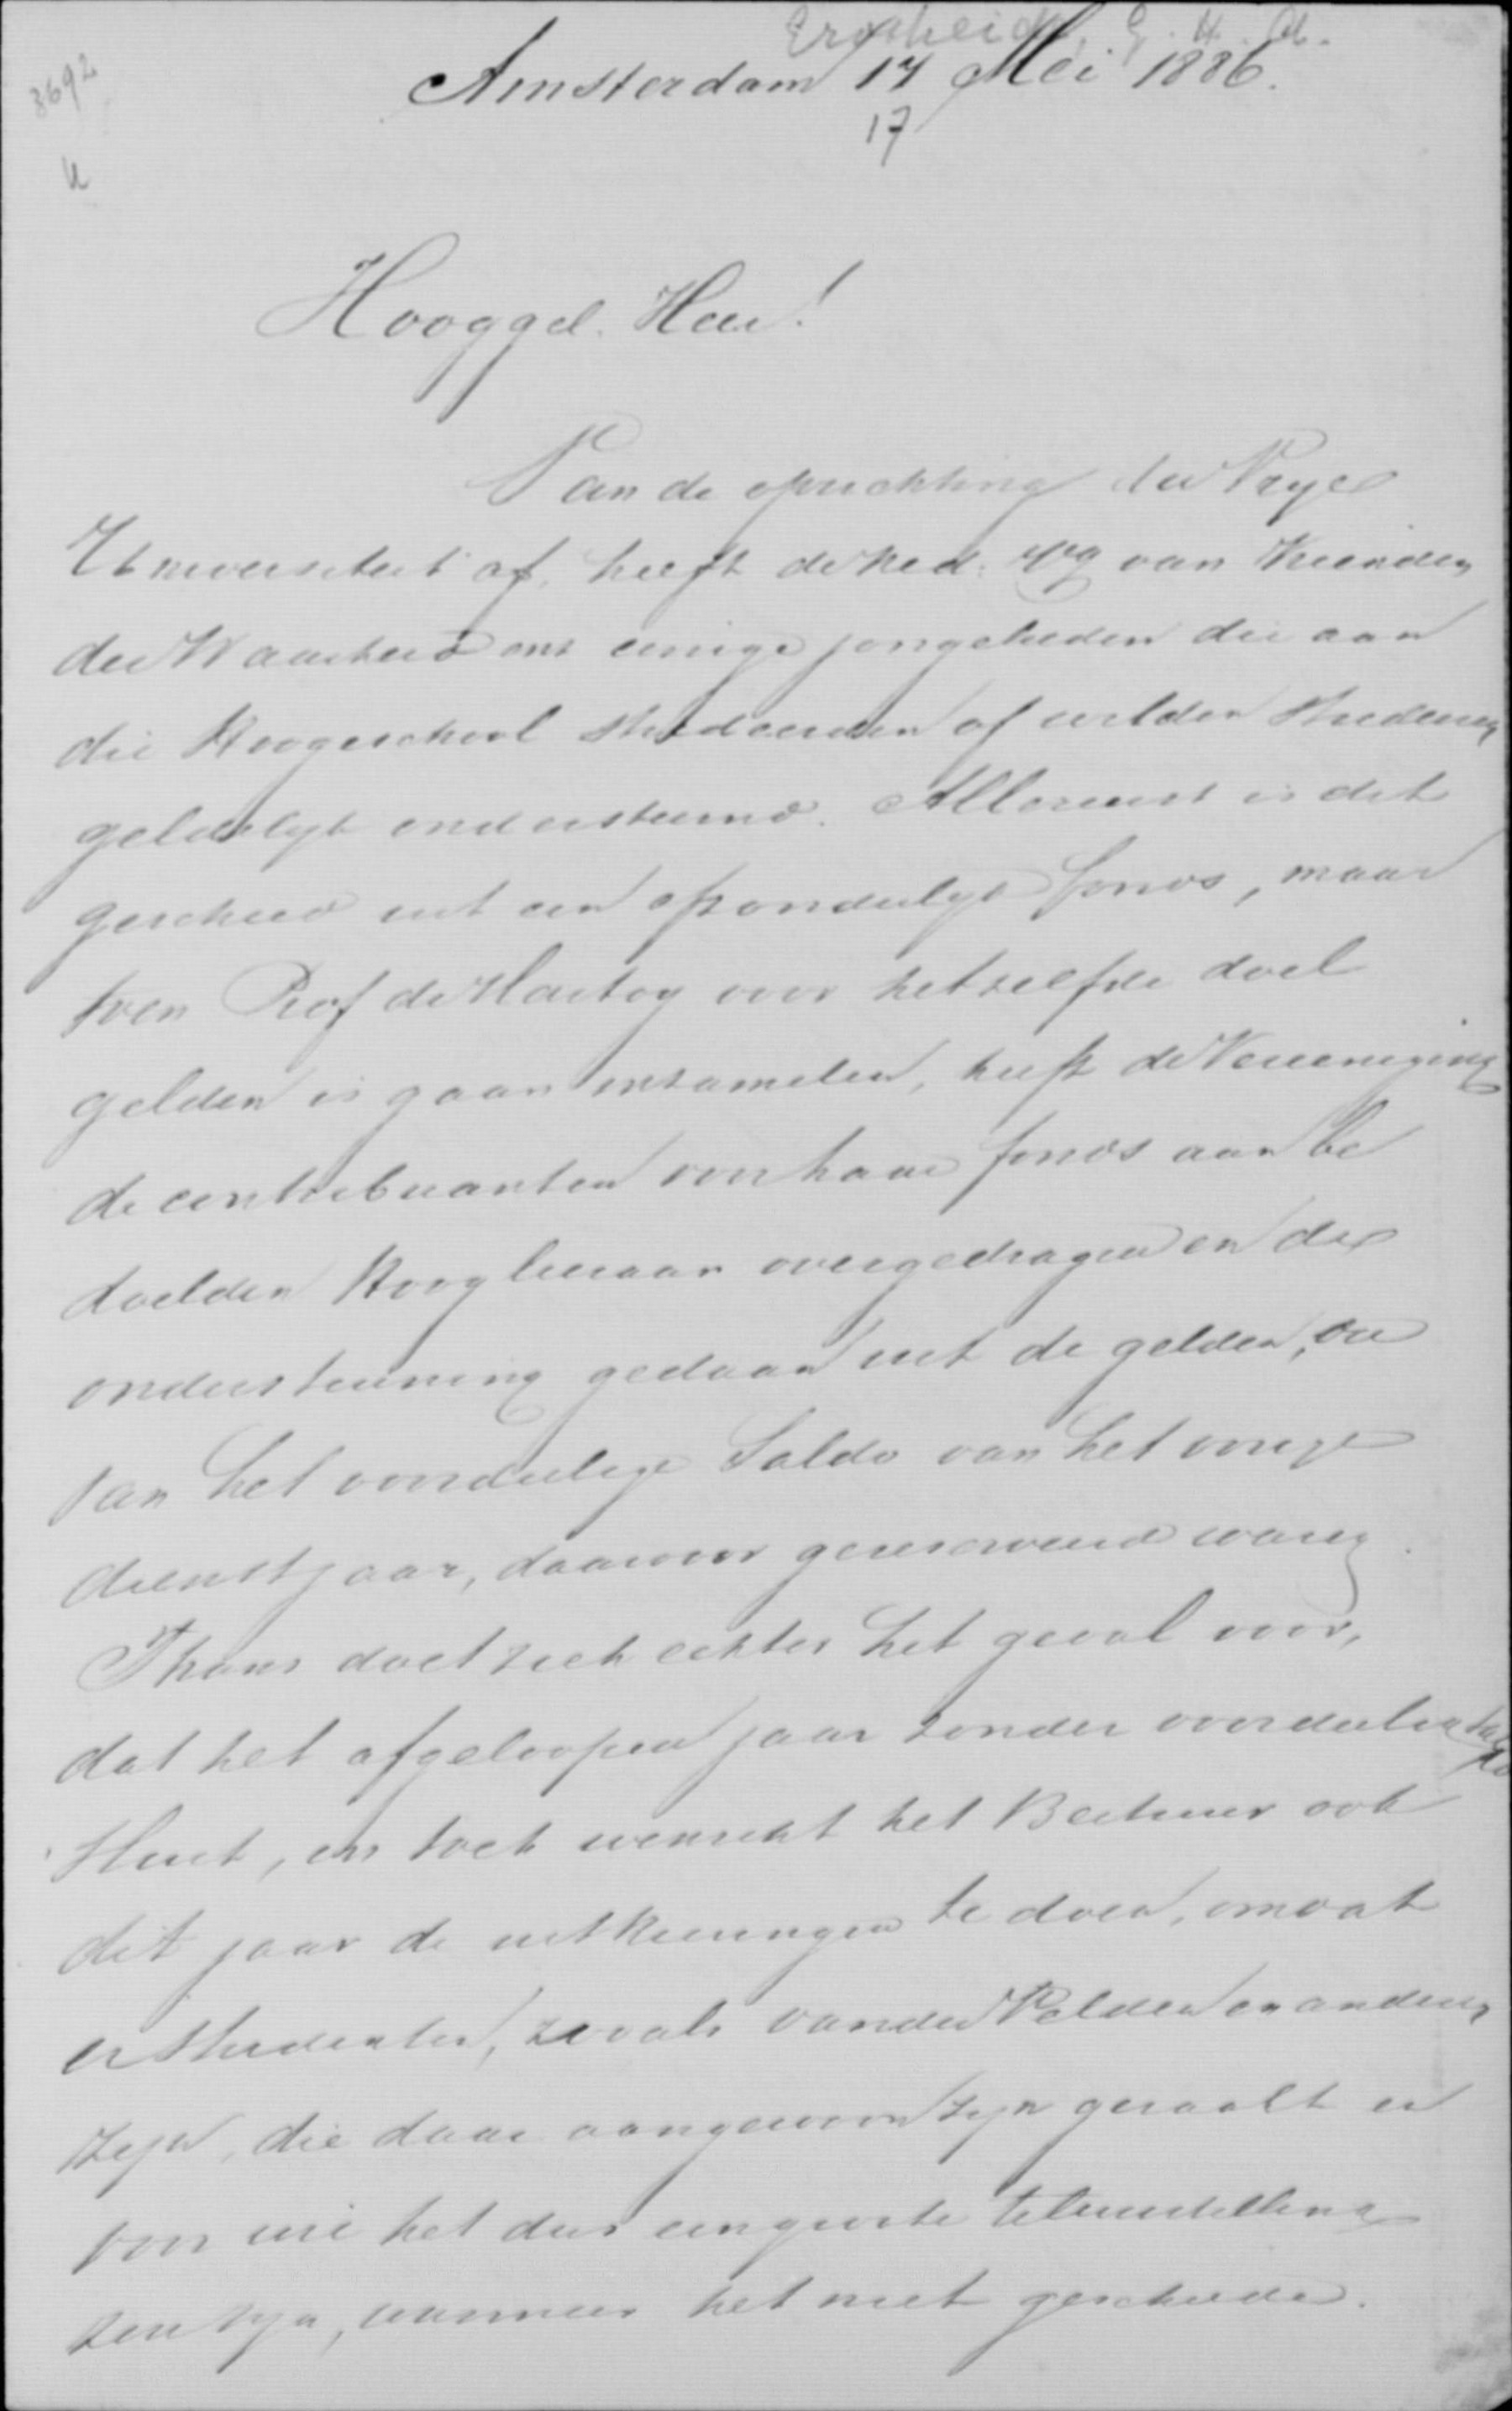 G. H. A.
3692
Amsterdam 17 Mei 1886.
17
Hooggel. Heer!
Van de oprichting der Vrije
Universiteit af, heeft de Ned. Vg van Vrienden
der Waarheid ons eenige jongelieden die aan
die Hoogeschool studeerden of wilden studeeren
geldelijk ondersteund. Allereerst is dit
geschied uit een afzonderlijk fonds, maar
toen Prof de Hartog voor hetzelfde doel
gelden is gaan inzamelen, heeft de Vereeniging
de contribuanten voor haar fonds aan be
doelden Hoogleeraar overgedragen en de
ondersteuning gedaan uit de gelden, die
van het voordeelige Saldo van het vorige
dienstjaar, daarvoor gereserveerd waren.
Thans doet zich echter het geval voor,
dat het afgeloopen jaar zonder voordeelig saldo
sluit, en toch wenscht het Bestuur ook
dit jaar de uitkeeringen te doen, omdat
er studenten, zooals van der Velden en anderen
zijn, die daar aangewoon zijn geraakt en
voor wie het dus eengroote teleurstelling
zou zijn, wanneer het niet geschiedde.